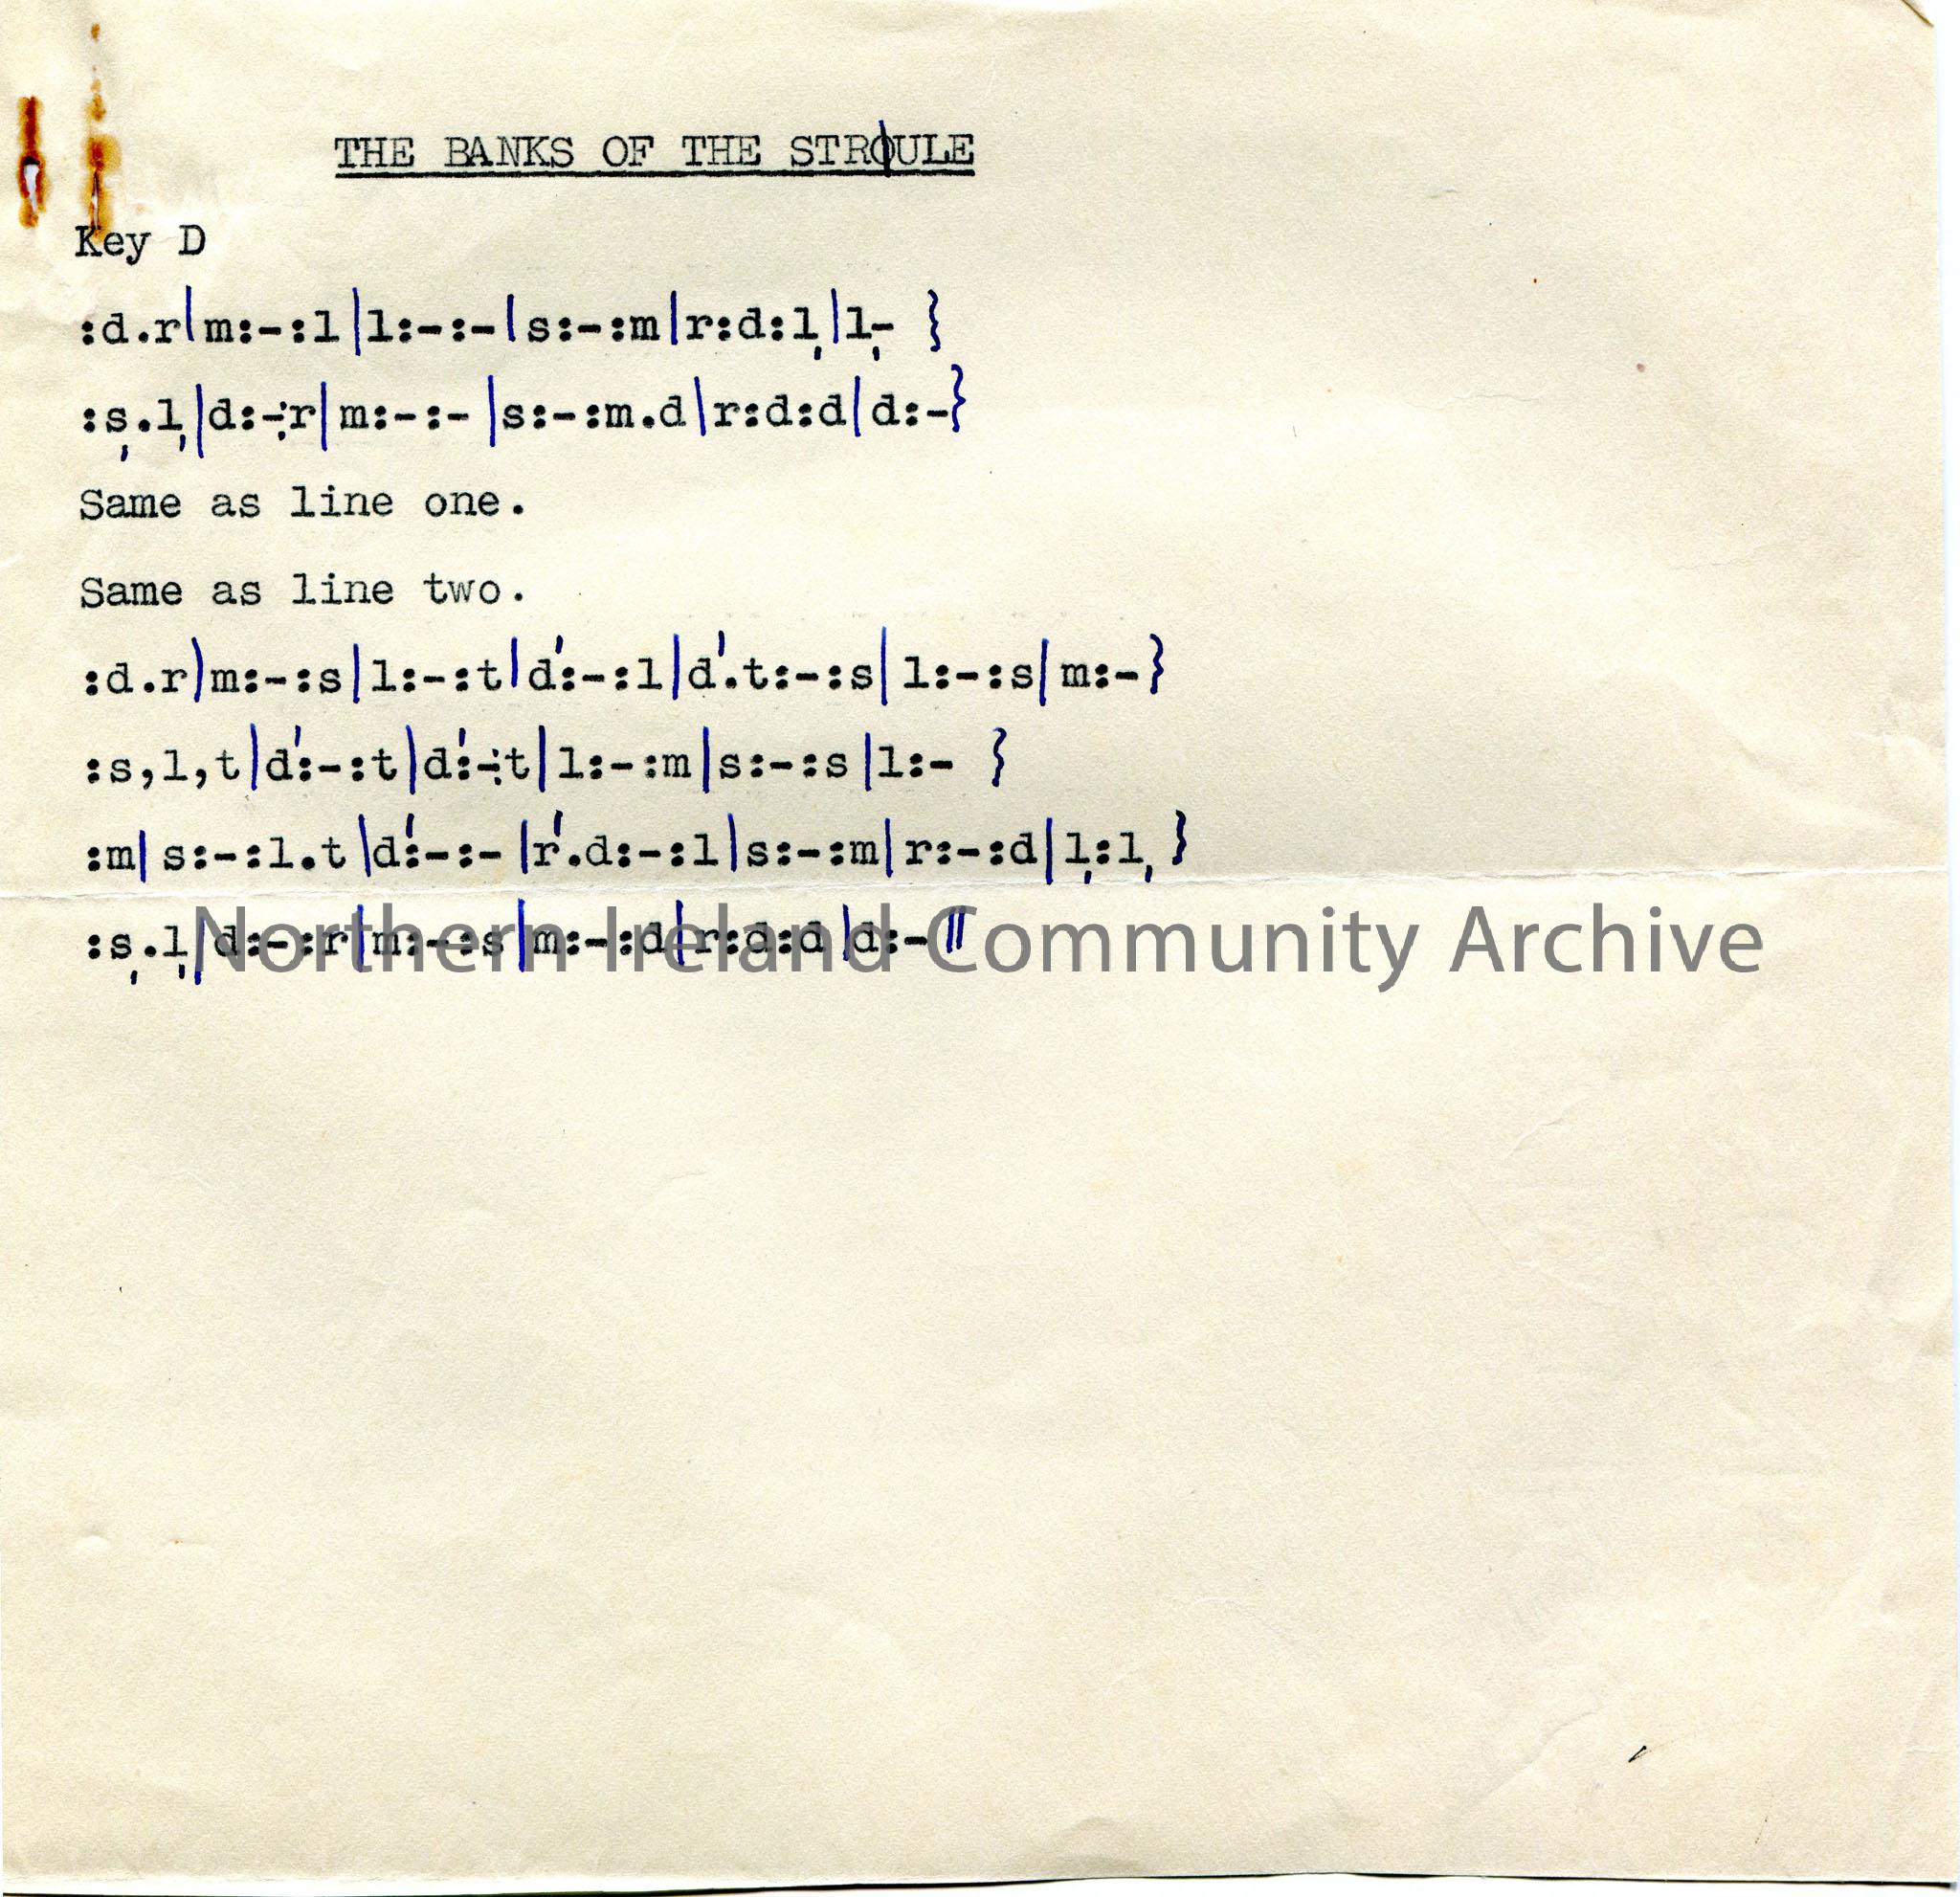 THE BANKS OF THE STROULE
Key D
:d.r|m:-:l|l:-:-|s:-:m|r:d:l,|l,- }
:s,.l,|d:-:r|m:-:- |s:-:m.d|r:d:d|d:-}
Same as line one.
Same as line two.
:d.r|m:-:s|l:-:t|d':-:l|d'.t:-:s|l:-:s|m:-}
:s,l,t|d':-:t|d':-:t|l:-:m|s:-:s|l:- }
:m|s:-:l.t|d':-:-|r'.d:-:l|s:-:m|r:-:d|l,:l, }
:s,.l,|d:-:r|m:-:s|m:-:d|r:d:d|d:-||
Northern Ireland Community Archive